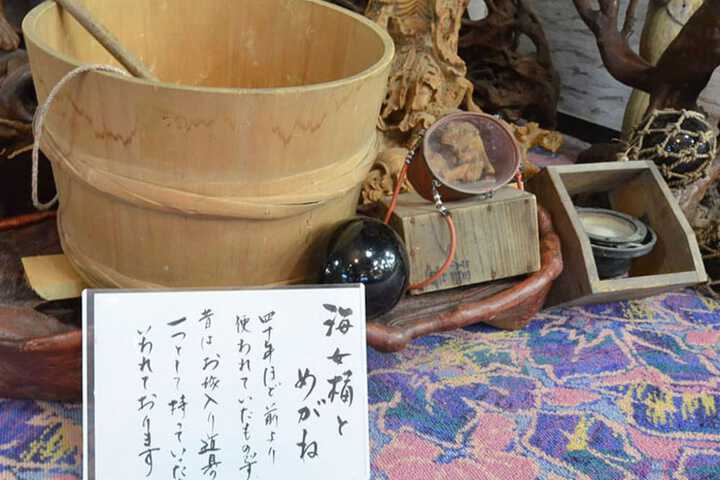 海女桶と
めがね
四十年ほど前より
使われていたものです
昔はお嫁入り道具の
一つとして持っていた
いわれております